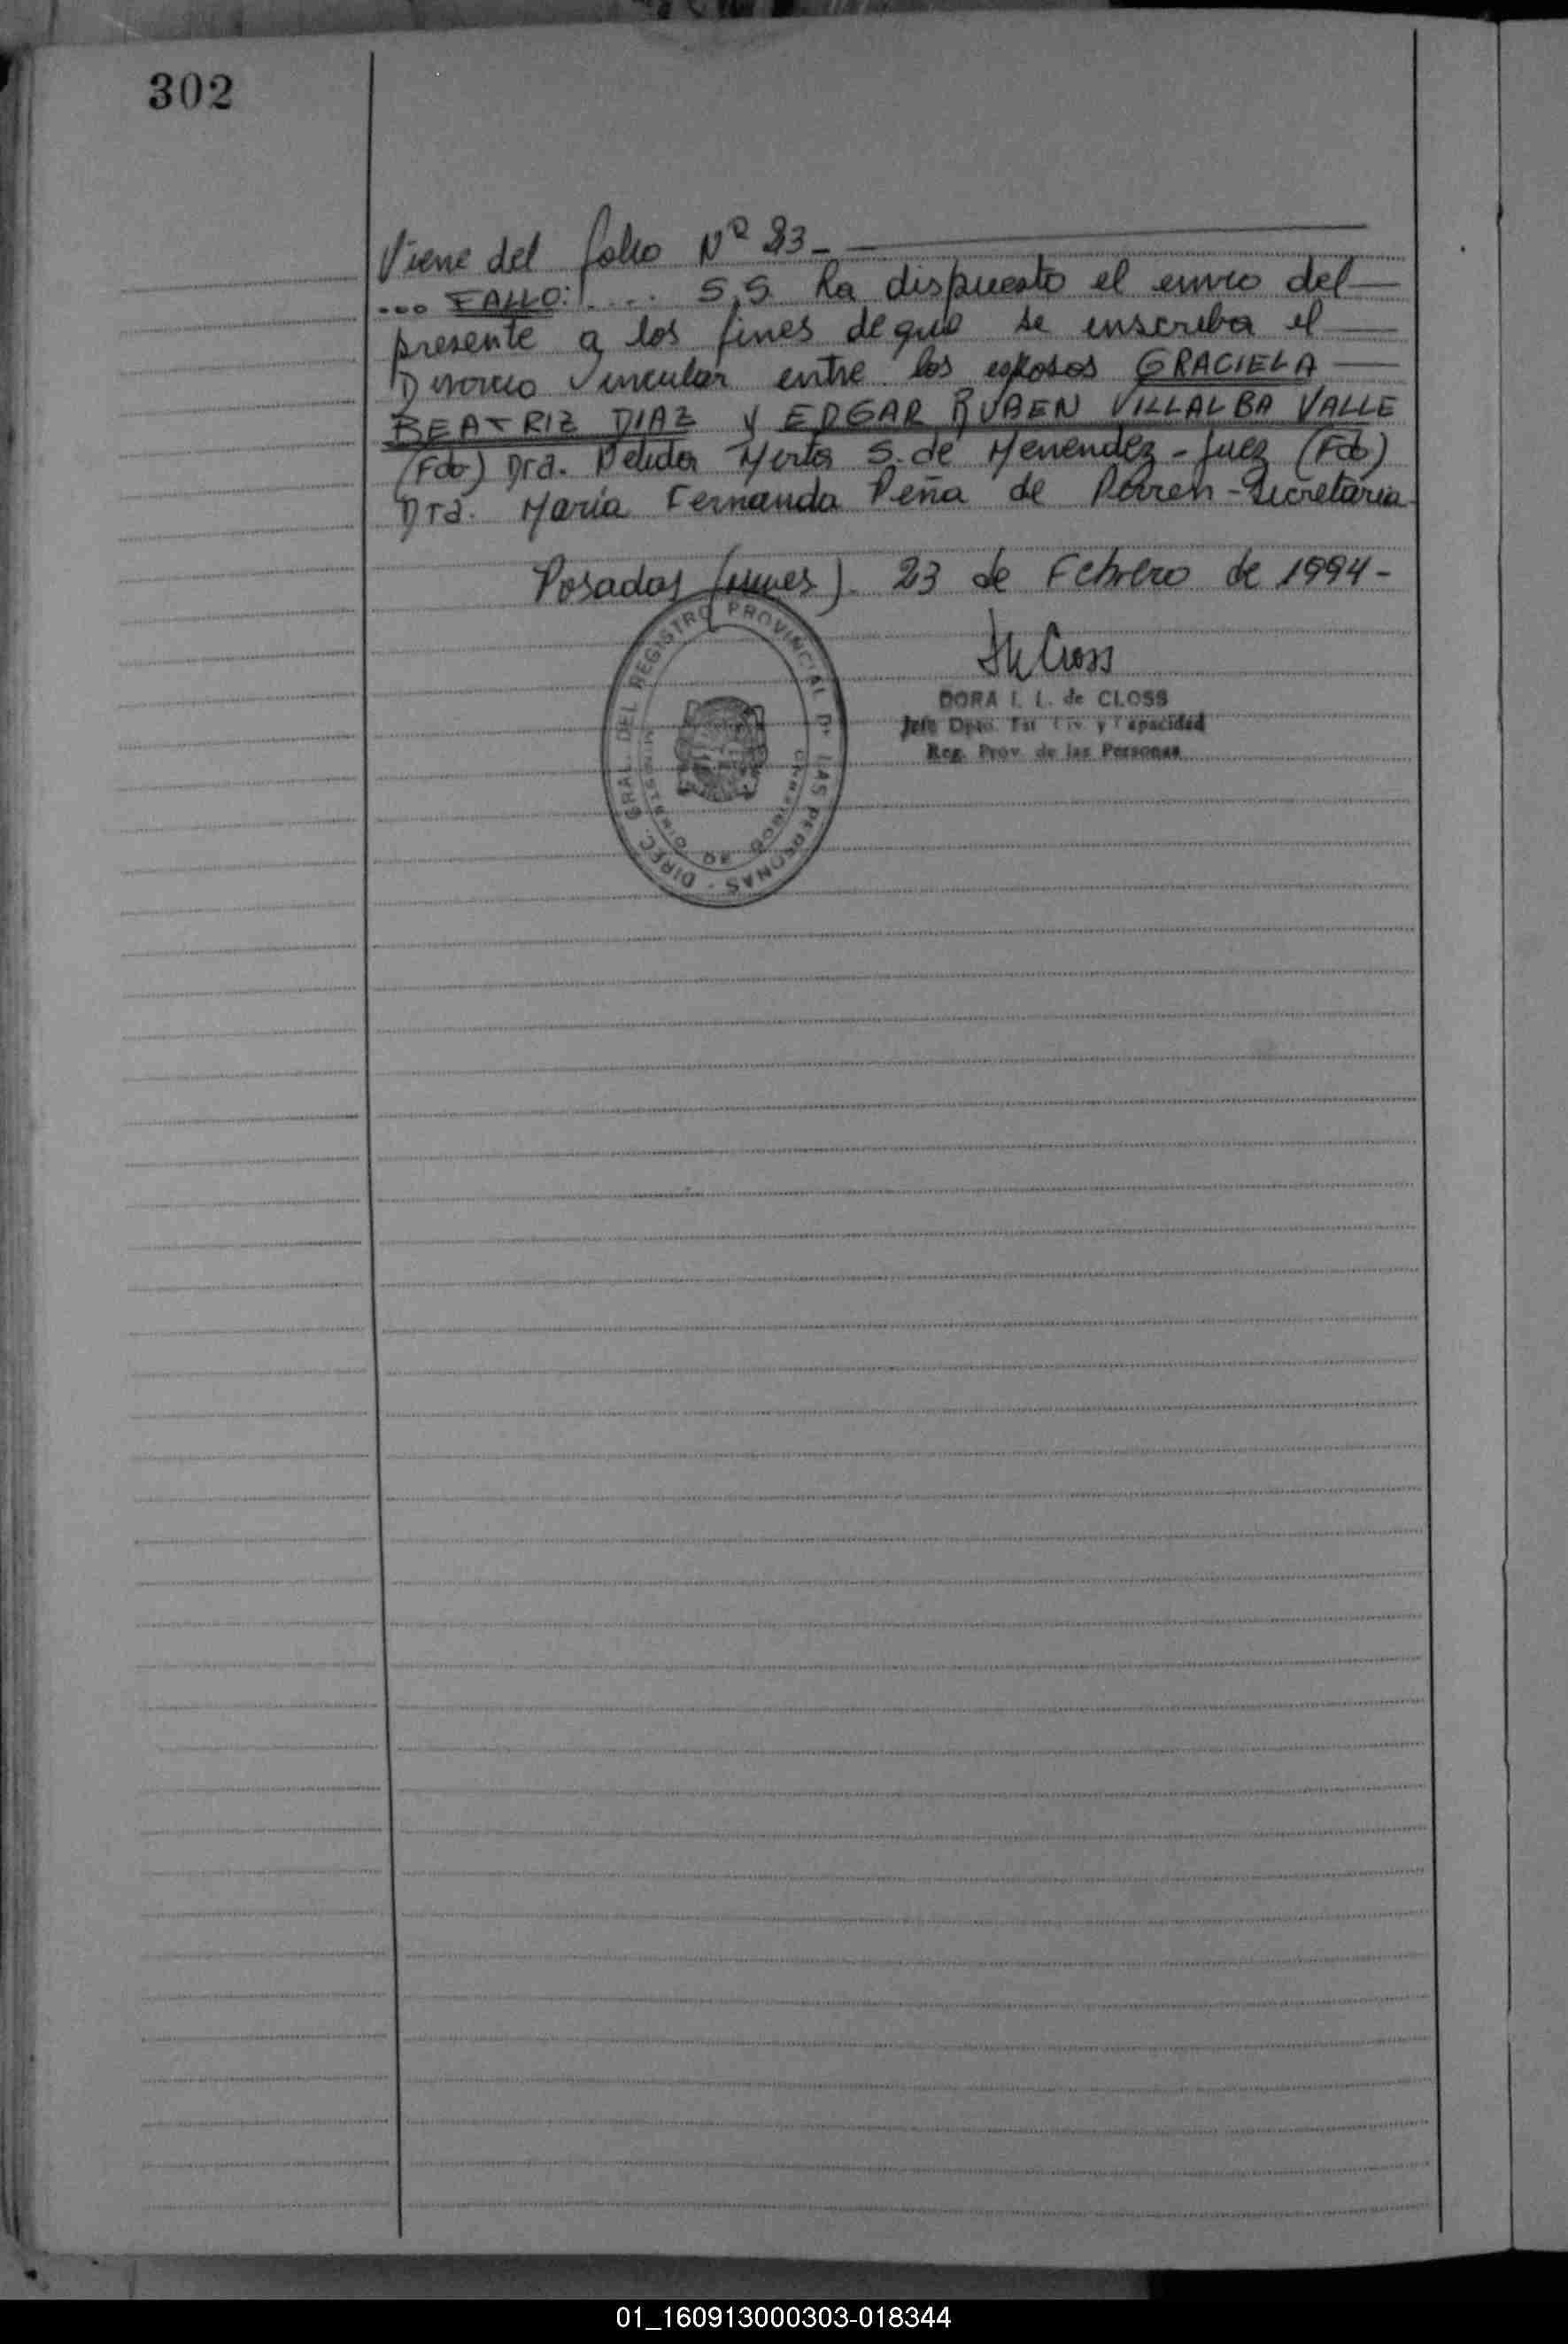 302
Viene del folio Nº 23-
... FALLO: .... S.S. ha dispuesto el envio del
presente a los fines de que se inscriba el
Divorcio Vincular entre los esposos GRACIELA
BEATRIZ DIAZ y EDGAR RUBEN VILLALBA VALLE
(Fdo) Dra. Delida Myrta S. de Menendez - Juez (Fdo)
Dra. María Fernanda Peña de - Secretaria
Posadas (Mnes). 23 de Febrero de 1994-
DIREC. GRAL. DEL REGISTRO PROVINCIAL DE LAS PERSONAS
MINISTERIO DE GOBIERNO
DORA I. L. de CLOSS
Jefe Dpto. Est. Civ. y Capacidad
Reg. Prov. de las Personas
01_160913000303-018344